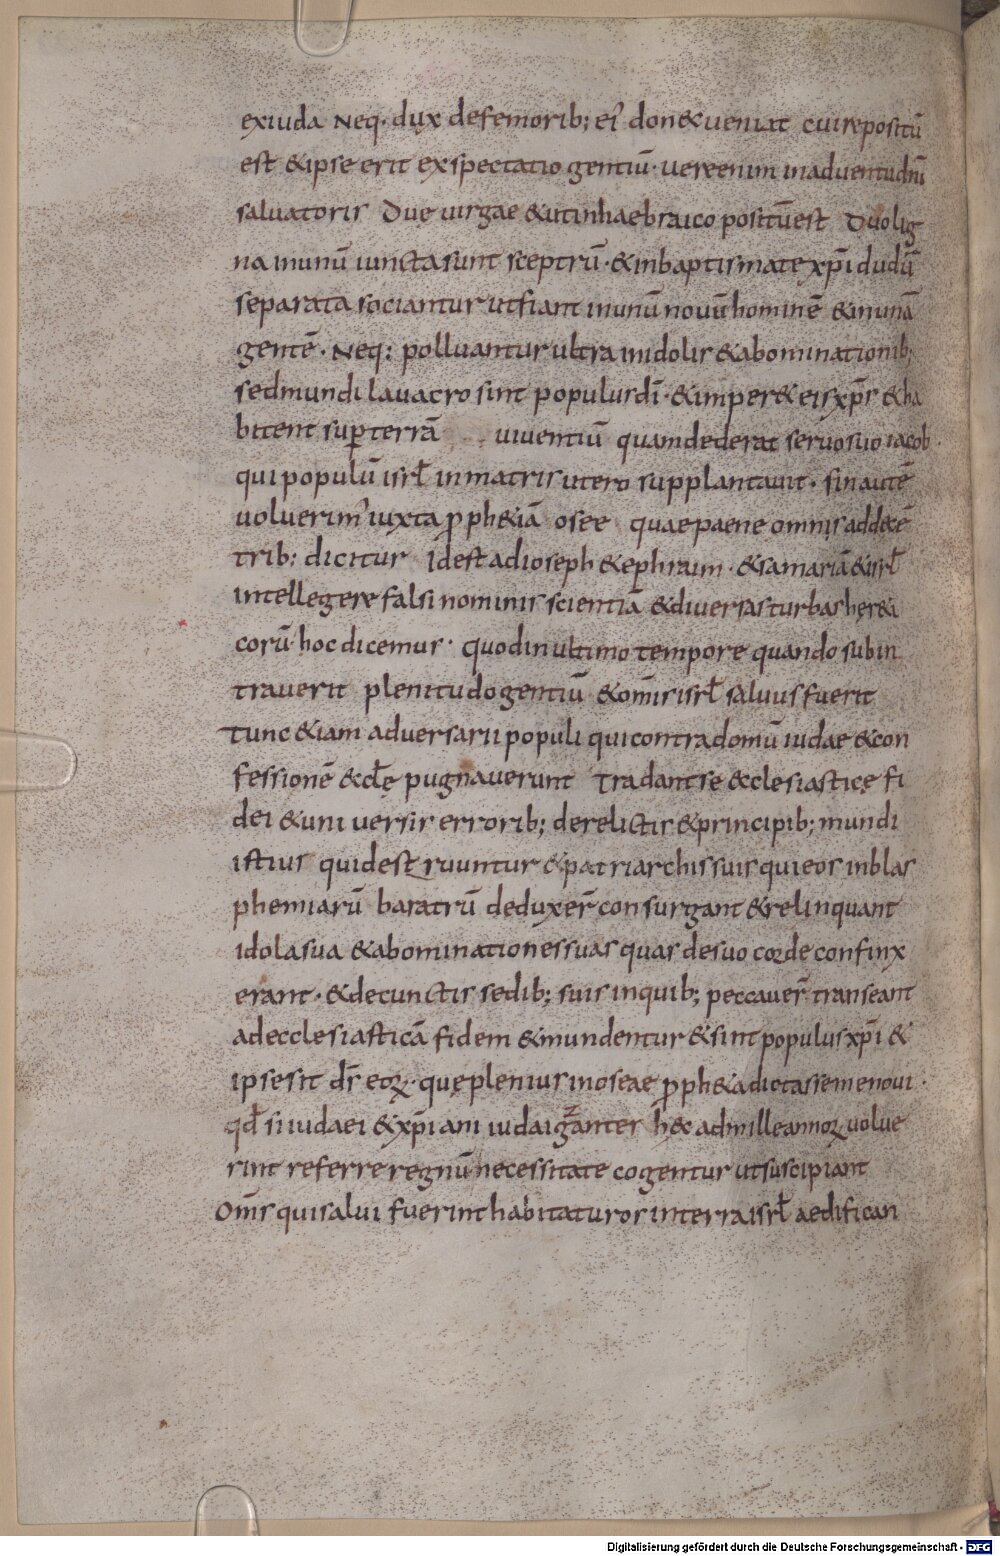 exiuda Neq· dux defemorib; ei' don&ueniat cuirepositū
est &ipse erit exspectatio gentiū· uereenim inaduentudn̄i
saluatoris Duę uirgae &utinhaebraico positūest Duolig
na inunū iunctasunt sceptrū·&inbaptismate xp̄i dudū
separata sociantur utfiant inunū nouūhominē &inunā
gentē· Neq: polluantur ultra inidolis &abominationib;
sedmundi lauacro sint populusdī·&imper& eis xp̄s &ha
bitent sup terrā uiuentiū quamdederat seruosuo iacob·
qui populū isrl̄ inmatris utero supplantauit· sin autē
uoluerim' iuxta p ph&iā osee quaepaene omnis addecē
trib: dicitur Idest adioseph &ephraim· &samariā&isrl̄
intellegere falsi nominis scientiā &diuersas turbas her&i
corū·hoc dicemus· quodin ultimo tempore quando subin
trauerit plenitudo gentiū &om̄is isrl̄ saluus fuerit
Tunc &iam aduersarii populi qui contradomū iudae &con
fessionē &cl̄ę pugnauerunt Tradant se &cclesiasticę fi
dei &uni uersis errorib; derelictis &principib; mundi
istius quidest ruuntur &patriarchis suis quieos inblas
phemiarū baratrū deduxer̄ consurgant &relinquant
idola sua &abominationes suas quas desuo corde confinx
erant· &decunctis sedib; suis inquib; peccauer̄ transeant
adecclesiasticā fidem &mundentur &sint populus xp̄i &
ipse sit ds̄ eoꝝ· quę plenius inoseae p ph&a dictassemenoui·
qd̄ si iudaei &xp̄iani iudaigzanter h& admilleannoꝝ uolue
rint referre regnū necessitate cogentur utsuscipiant
Om̄s qui salui fuerint habitaturos interra isrl̄ aedifican
Digitalisierung gefördert durch die Deutsche Forschungsgemeinschaft - DFG